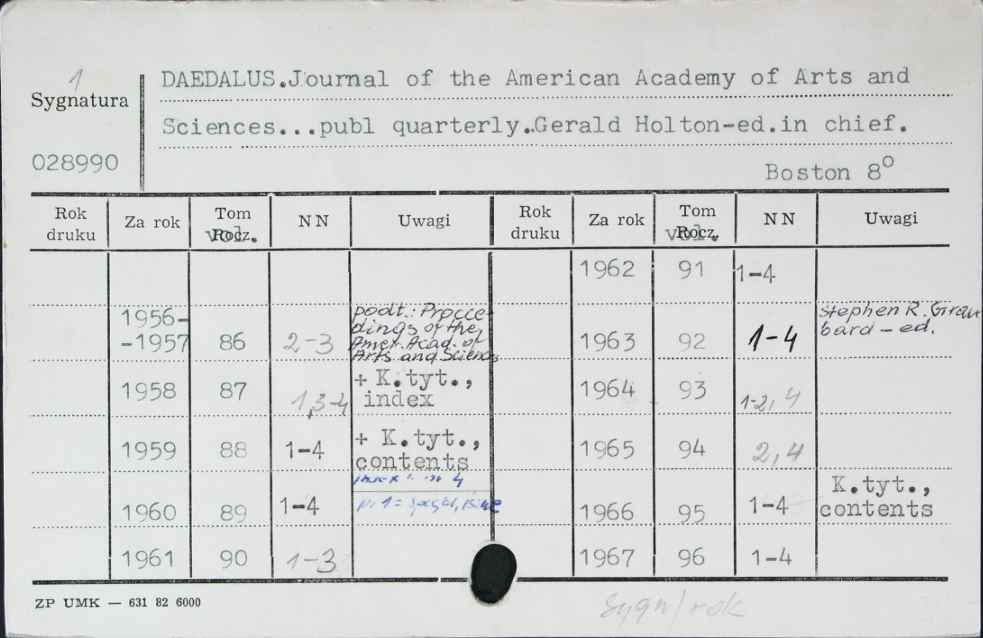 1
Sygnatura
028990
DAEDALUS.Journal of the American Academy of Arts and
Sciences...publ quarterly.Gerald Holton-ed.in chief.
Boston 8°
Rok druku | Za rok | Tom Rocz. vol. | NN | Uwagi | Rok druku | Za rok | Tom Rocz. vol. | NN | Uwagi
1962 91 1-4
1956-
-1957 86 2-3 podt.: Procce
dings of the
Amer. Acad. of
Arts and Sciences
1963 92 1-4 Stephen R. Grau
bard - ed.
1958 87 1,3-4 + K.tyt.,
index
1964 93 1-2, 4
1959 88 1-4 + K.tyt.,
contents
1965 94 2,4
4
1960 89 1-4 nr 1 =
1966 95 1-4 K.tyt.,
contents
1961 90 1-3
1967 96 1-4
ZP UMK — 631 82 6000
Sygn/rok